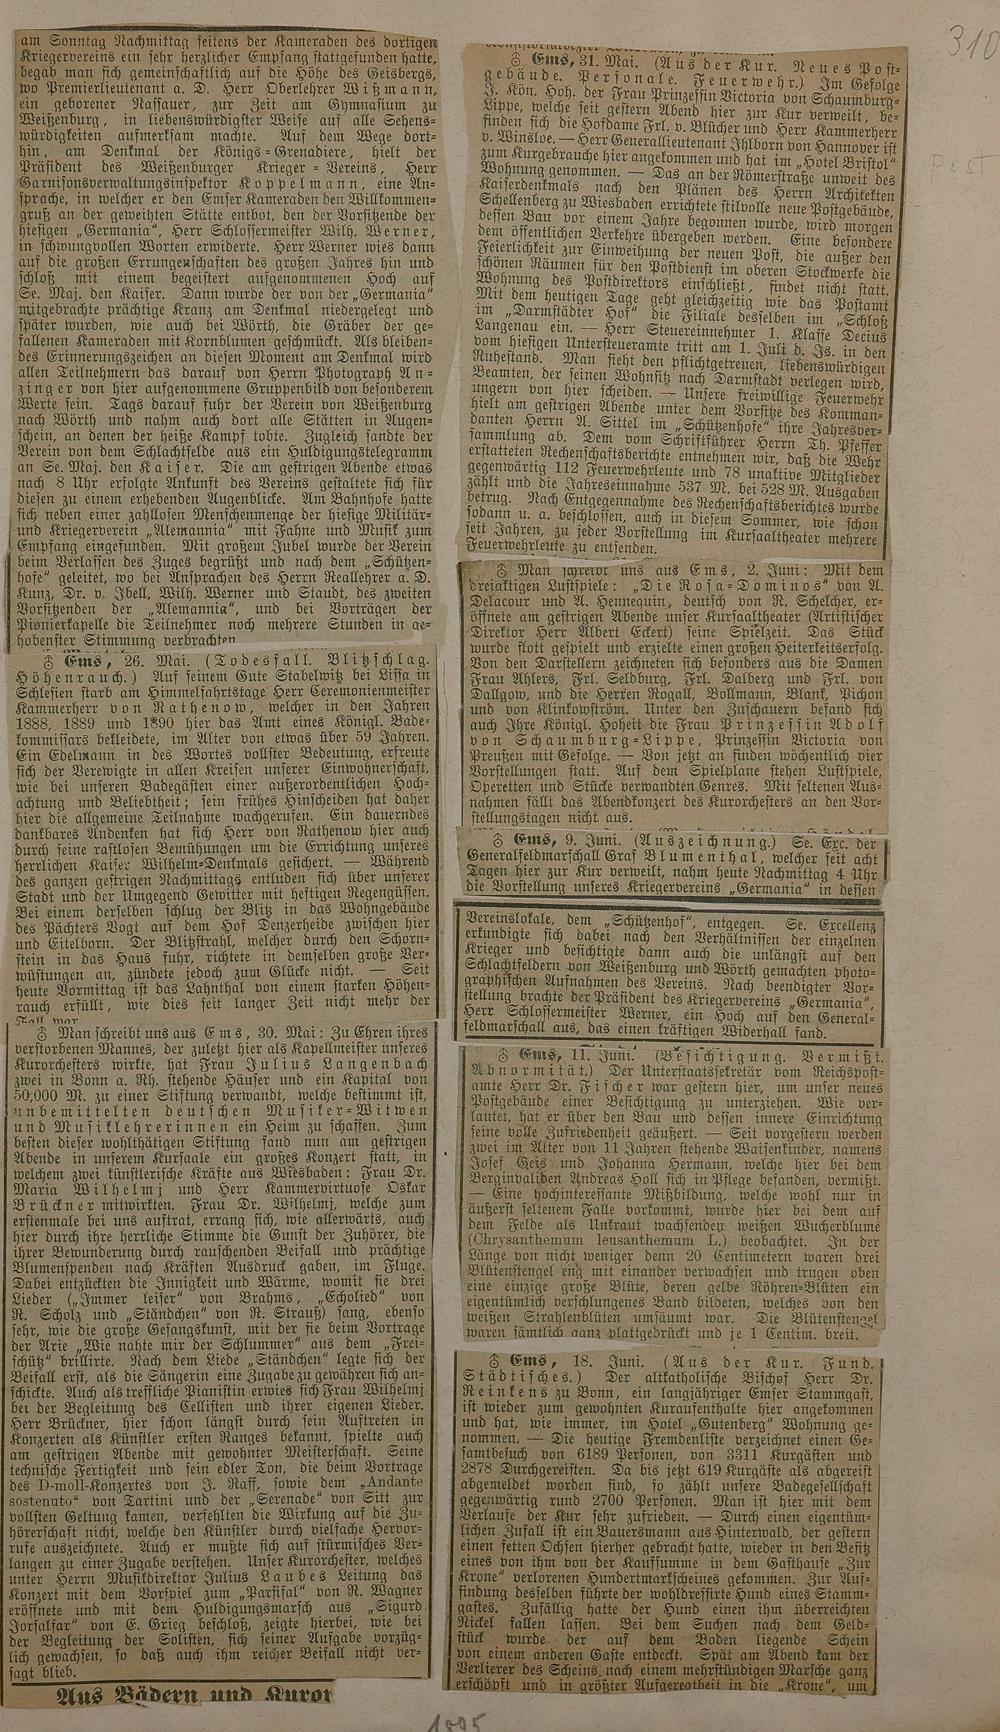 am Sonntag Nachmittag seitens der Kameraden des dortigen
Kriegervereins ein sehr herzlicher Empfang stattgefunden hatte,
begab man sich gemeinschaftlich auf die Höhe des Geisbergs,
wo Premierlieutenant a. D. Herr Oberlehrer Wißmann,
ein geborener Nassauer, zur Zeit am Gymnasium zu
Weißenburg, in liebenswürdigster Weise auf alle Sehens-
würdigkeiten aufmerksam machte. Auf dem Wege dort-
hin, am Denkmal der Königs-Grenadiere, hielt der
Präsident des Weißenburger Krieger-Vereins, Herr
Garnisonsverwaltungsinspektor Koppelmann, eine An-
sprache, in welcher er den Emser Kameraden den Willkommen-
gruß an der geweihten Stätte entbot, den der Vorsitzende der
hiesigen „Germania“, Herr Schlossermeister Wilh. Werner,
in schwungvollen Worten erwiderte. Herr Werner wies dann
auf die großen Errungenschaften des großen Jahres hin und
schloß mit einem begeistert aufgenommenen Hoch auf
Se. Maj. den Kaiser. Dann wurde der von der „Germania“
mitgebrachte prächtige Kranz am Denkmal niedergelegt und
später wurden, wie auch bei Wörth, die Gräber der ge-
fallenen Kameraden mit Kornblumen geschmückt. Als bleiben-
des Erinnerungszeichen an diesen Moment am Denkmal wird
allen Teilnehmern das darauf von Herrn Photograph An-
zinger von hier aufgenommene Gruppenbild von besonderem
Werte sein. Tags darauf fuhr der Verein von Weißenburg
nach Wörth und nahm auch dort alle Stätten in Augen-
schein, an denen der heiße Kampf tobte. Zugleich sandte der
Verein von dem Schlachtfelde aus ein Huldigungstelegramm
an Se. Maj. den Kaiser. Die am gestrigen Abende etwas
nach 8 Uhr erfolgte Ankunft des Vereins gestaltete sich für
diesen zu einem erhebenden Augenblicke. Am Bahnhofe hatte
sich neben einer zahllosen Menschenmenge der hiesige Militär-
und Kriegerverein „Alemannia“ mit Fahne und Musik zum
Empfang eingefunden. Mit großem Jubel wurde der Verein
beim Verlassen des Zuges begrüßt und nach dem „Schützen-
hofe“ geleitet, wo bei Ansprachen des Herrn Reallehrer a. D.
Kunz, Dr. v. Ibell, Wilh. Werner und Staudt, des zweiten
Vorsitzenden der „Alemannia“, und bei Vorträgen der
Pionierkapelle die Teilnehmer noch mehrere Stunden in ge-
hobenster Stimmung verbrachten.
♁ Ems, 26. Mai. (Todesfall. Blitzschlag.
Höhenrauch.) Auf seinem Gute Stabelwitz bei Lissa in
Schlesien starb am Himmelfahrtstage Herr Ceremonienmeister
Kammerherr von Rathenow, welcher in den Jahren
1888, 1889 und 1890 hier das Amt eines Königl. Bade-
kommissars bekleidete, im Alter von etwas über 59 Jahren.
Ein Edelmann in des Wortes vollster Bedeutung, erfreute
sich der Verewigte in allen Kreisen unserer Einwohnerschaft,
wie bei unseren Badegästen einer außerordentlichen Hoch-
achtung und Beliebtheit; sein frühes Hinscheiden hat daher
hier die allgemeine Teilnahme wachgerufen. Ein dauerndes
dankbares Andenken hat sich Herr von Rathenow hier auch
durch seine rastlosen Bemühungen um die Errichtung unseres
herrlichen Kaiser Wilhelm-Denkmals gesichert. — Während
des ganzen gestrigen Nachmittags entluden sich über unserer
Stadt und der Umgegend Gewitter mit heftigen Regengüssen.
Bei einem derselben schlug der Blitz in das Wohngebäude
des Pächters Vogt auf dem Hof Denzerheide zwischen hier
und Eitelborn. Der Blitzstrahl, welcher durch den Schorn-
stein in das Haus fuhr, richtete in demselben große Ver-
wüstungen an, zündete jedoch zum Glücke nicht. — Seit
heute Vormittag ist das Lahnthal von einem starken Höhen-
rauch erfüllt, wie dies seit langer Zeit nicht mehr der
Fall war.
♁ Man schreibt uns aus Ems, 30. Mai: Zu Ehren ihres
verstorbenen Mannes, der zuletzt hier als Kapellmeister unseres
Kurorchesters wirkte, hat Frau Julius Langenbach
zwei in Bonn a. Rh. stehende Häuser und ein Kapital von
50,000 M. zu einer Stiftung verwandt, welche bestimmt ist,
unbemittelten deutschen Musiker-Witwen
und Musiklehrerinnen ein Heim zu schaffen. Zum
besten dieser wohlthätigen Stiftung fand nun am gestrigen
Abende in unserem Kursaale ein großes Konzert statt, in
welchem zwei künstlerische Kräfte aus Wiesbaden: Frau Dr.
Maria Wilhelmj und Herr Kammervirtuose Oskar
Brückner mitwirkten. Frau Dr. Wilhelmj, welche zum
erstenmale bei uns auftrat, errang sich, wie allerwärts, auch
hier durch ihre herrliche Stimme die Gunst der Zuhörer, die
ihrer Bewunderung durch rauschenden Beifall und prächtige
Blumenspenden nach Kräften Ausdruck gaben, im Fluge.
Dabei entzückten die Innigkeit und Wärme, womit sie drei
Lieder („Immer leiser“ von Brahms, „Echolied“ von
R. Scholz und „Ständchen“ von R. Strauß) sang, ebenso
sehr, wie die große Gesangskunst, mit der sie beim Vortrage
der Arie „Wie nahte mir der Schlummer“ aus dem „Frei-
schütz“ brillirte. Nach dem Liede „Ständchen“ legte sich der
Beifall erst, als die Sängerin eine Zugabe zu gewähren sich an-
schickte. Auch als treffliche Pianistin erwies sich Frau Wilhelmj
bei der Begleitung des Cellisten und ihrer eigenen Lieder.
Herr Brückner, hier schon längst durch sein Auftreten in
Konzerten als Künstler ersten Ranges bekannt, spielte auch
am gestrigen Abende mit gewohnter Meisterschaft. Seine
technische Fertigkeit und sein edler Ton, die beim Vortrage
des D-moll-Konzertes von J. Raff, sowie dem „Andante
sostenuto“ von Tartini und der „Serenade“ von Sitt zur
vollsten Geltung kamen, verfehlten die Wirkung auf die Zu-
hörerschaft nicht, welche den Künstler durch vielfache Hervor-
rufe auszeichnete. Auch er mußte sich auf stürmisches Ver-
langen zu einer Zugabe verstehen. Unser Kurorchester, welches
unter Herrn Musikdirektor Julius Laubes Leitung das
Konzert mit dem Vorspiel zum „Parsifal“ von R. Wagner
eröffnete und mit dem Huldigungsmarsch aus „Sigurd
Jorsalfar“ von E. Grieg beschloß, zeigte hierbei, wie bei
der Begleitung der Solisten, sich seiner Aufgabe vorzüg-
lich gewachsen, so daß auch ihm reicher Beifall nicht ver-
sagt blieb.
Aus Bädern und Kuror
♁ Ems, 31. Mai. (Aus der Kur. Neues Post-
gebäude. Personale. Feuerwehr.) Im Gefolge
J. Kön. Hoh. der Frau Prinzessin Victoria von Schaumburg-
Lippe, welche seit gestern Abend hier zur Kur verweilt, be-
finden sich die Hofdame Frl. v. Blücher und Herr Kammerherr
v. Winsloe. — Herr Generallieutenant Ihlborn von Hannover ist
zum Kurgebrauche hier angekommen und hat im „Hotel Bristol“
Wohnung genommen. — Das an der Römerstraße unweit des
Kaiserdenkmals nach den Plänen des Herrn Architekten
Schellenberg zu Wiesbaden errichtete stilvolle neue Postgebäude,
dessen Bau vor einem Jahre begonnen wurde, wird morgen
dem öffentlichen Verkehre übergeben werden. Eine besondere
Feierlichkeit zur Einweihung der neuen Post, die außer den
schönen Räumen für den Postdienst im oberen Stockwerke die
Wohnung des Postdirektors einschließt, findet nicht statt.
Mit dem heutigen Tage geht gleichzeitig wie das Postamt
im „Darmstädter Hof“ die Filiale desselben im „Schloß
Langenau ein. — Herr Steuereinnehmer 1. Klasse Decius
vom hiesigen Untersteueramte tritt am 1. Juli d. Js. in den
Ruhestand. Man sieht den pflichtgetreuen, liebenswürdigen
Beamten, der seinen Wohnsitz nach Darmstadt verlegen wird,
ungern von hier scheiden. — Unsere freiwillige Feuerwehr
hielt am gestrigen Abende unter dem Vorsitze des Komman-
danten Herrn A. Sittel im „Schützenhofe“ ihre Jahresver-
sammlung ab. Dem vom Schriftführer Herrn Th. Pfeffer
erstatteten Rechenschaftsberichte entnehmen wir, daß die Wehr
gegenwärtig 112 Feuerwehrleute und 78 unaktive Mitglieder
zählt und die Jahreseinnahme 537 M. bei 528 M. Ausgaben
betrug. Nach Entgegennahme des Rechenschaftsberichtes wurde
sodann u. a. beschlossen, auch in diesem Sommer, wie schon
seit Jahren, zu jeder Vorstellung im Kursaaltheater mehrere
Feuerwehrleute zu entsenden.
♁ Man schreibt uns aus Ems, 2. Juni: Mit dem
dreiaktigen Lustspiele: „Die Rosa-Dominos“ von A.
Delacour und A. Hennequin, deutsch von R. Schelcher, er-
öffnete am gestrigen Abende unser Kursaaltheater (Artistischer
Direktor Herr Albert Eckert) seine Spielzeit. Das Stück
wurde flott gespielt und erzielte einen großen Heiterkeitserfolg.
Von den Darstellern zeichneten sich besonders aus die Damen
Frau Ahlers, Frl. Seldburg, Frl. Dalberg und Frl. von
Dallgow, und die Herren Rogall, Bollmann, Blank, Pichon
und von Klinkowström. Unter den Zuschauern befand sich
auch Ihre Königl. Hoheit die Frau Prinzessin Adolf
von Schaumburg-Lippe, Prinzessin Victoria von
Preußen mit Gefolge. — Von jetzt an finden wöchentlich vier
Vorstellungen statt. Auf dem Spielplane stehen Lustspiele,
Operetten und Stücke verwandten Genres. Mit seltenen Aus-
nahmen fällt das Abendkonzert des Kurorchesters an den Vor-
stellungstagen nicht aus.
♁ Ems, 9. Juni. (Auszeichnung.) Se. Exc. der
Generalfeldmarschall Graf Blumenthal, welcher seit acht
Tagen hier zur Kur verweilt, nahm heute Nachmittag 4 Uhr
die Vorstellung unseres Kriegervereins „Germania“ in dessen
Vereinslokale, dem „Schützenhof“, entgegen. Se. Excellenz
erkundigte sich dabei nach den Verhältnissen der einzelnen
Krieger und besichtigte dann auch die unlängst auf den
Schlachtfeldern von Weißenburg und Wörth gemachten photo-
graphischen Aufnahmen des Vereins. Nach beendigter Vor-
stellung brachte der Präsident des Kriegervereins „Germania“,
Herr Schlossermeister Werner, ein Hoch auf den General-
feldmarschall aus, das einen kräftigen Widerhall fand.
♁ Ems, 11. Juni. (Besichtigung. Vermißt.
Abnormität.) Der Unterstaatssekretär vom Reichspost-
amte Herr Dr. Fischer war gestern hier, um unser neues
Postgebäude einer Besichtigung zu unterziehen. Wie ver-
lautet, hat er über den Bau und dessen innere Einrichtung
seine volle Zufriedenheit geäußert. — Seit vorgestern werden
zwei im Alter von 11 Jahren stehende Waisenkinder, namens
Josef Geis und Johanna Hermann, welche hier bei dem
Berginvaliden Andreas Holl sich in Pflege befanden, vermißt.
— Eine hochinteressante Mißbildung, welche wohl nur in
äußerst seltenem Falle vorkommt, wurde hier bei dem auf
dem Felde als Unkraut wachsenden weißen Wucherblume
(Chrysanthemum leusanthemum L.) beobachtet. In der
Länge von nicht weniger denn 20 Centimetern waren drei
Blütenstengel eng mit einander verwachsen und trugen oben
eine einzige große Blüte, deren gelbe Röhren-Blüten ein
eigentümlich verschlungenes Band bildeten, welches von den
weißen Strahlenblüten umsäumt war. Die Blütenstengel
waren sämtlich ganz plattgedrückt und je 1 Centim. breit.
♁ Ems, 18. Juni. (Aus der Kur. Fund.
Städtisches.) Der altkatholische Bischof Herr Dr.
Reinkens zu Bonn, ein langjähriger Emser Stammgast,
ist wieder zum gewohnten Kuraufenthalte hier angekommen
und hat, wie immer, im Hotel „Gutenberg“ Wohnung ge-
nommen. — Die heutige Fremdenliste verzeichnet einen Ge-
samtbesuch von 6189 Personen, von 3311 Kurgästen und
2878 Durchgereisten. Da bis jetzt 619 Kurgäste als abgereist
abgemeldet worden sind, so zählt unsere Badegesellschaft
gegenwärtig rund 2700 Personen. Man ist hier mit dem
Verlaufe der Kur sehr zufrieden. — Durch einen eigentüm-
lichen Zufall ist ein Bauersmann aus Hinterwald, der gestern
einen fetten Ochsen hierher gebracht hatte, wieder in den Besitz
eines von ihm von der Kaufsumme in dem Gasthause „Zur
Krone“ verlorenen Hundertmarkscheines gekommen. Zur Auf-
findung desselben führte der wohldressirte Hund eines Stamm-
gastes. Zufällig hatte der Hund einen ihm überreichten
Nickel fallen lassen. Bei dem Suchen nach dem Geld-
stück wurde der auf dem Boden liegende Schein
von einem anderen Gaste entdeckt. Spät am Abend kam der
Verlierer des Scheins nach einem mehrstündigen Marsche ganz
erschöpft und in größter Aufgeregtheit in die „Krone“, um
310
post
1895